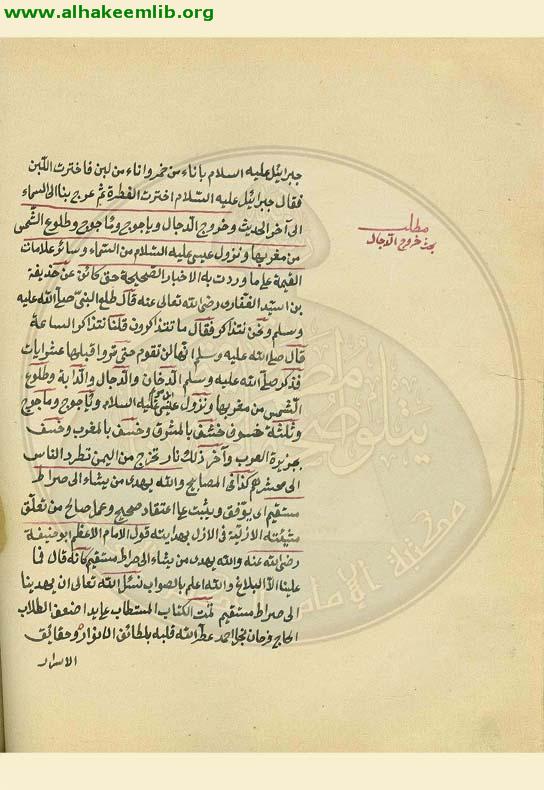 www.alhakeemlib.org
جبرائيل عليه السلام باناء من خمر واناء من لبن فاخترت اللبن
فقال جبرائيل عليه السلام اخترت الفطرة ثم عرج بنا الى السماء
الى آخر الحديث وخروج الدجال وياجوج وماجوج وطلوع الشمس
من مغربها ونزول عيسى عليه السلام من السماء وسائر علامات
القيمة على ما وردت به الاخبار الصحيحة حق كائن عن حذيفة
بن اسيد الغفارى رضى الله تعالى عنه قال طلع النبى صلى الله عليه
وسلم ونحن نتذاكر فقال ما تتذاكرون قلنا نتذاكر الساعة
قال صلى الله عليه وسلم انها لن تقوم حتى تروا قبلها عشر ايات
فذكر صلى الله عليه وسلم الدخان والدجال والدابة وطلوع
الشمس من مغربها ونزول عيسى ابن مريم عليه السلام وياجوج وماجوج
وثلثة خسوف خسف بالمشرق وخسف بالمغرب وخسف
بجزيرة العرب وآخر ذلك نار تخرج من اليمن تطرد الناس
الى محشرهم كذا فى المصابيح والله يهدى من يشاء الى صراط
مستقيم اى يوفق ويثبت على اعتقاد صحيح وعمل صالح من تعلق
مشيئته الازلية فى الازل بهدايته قول الامام الاعظم ابو حنيفة
رضى الله عنه والله يهدى من يشاء الى صراط مستقيم كانه قال فما
علينا الا البلاغ والله اعلم بالصواب نسئل الله تعالى ان يهدينا
الى صراط مستقيم تمت الكتاب المستطاب على يد اضعف الطلاب
الحاج احمد عطر الله قلبه بلطائف الانوار وحقايق
الاسرار
مطلب
بحث خروج الدجال